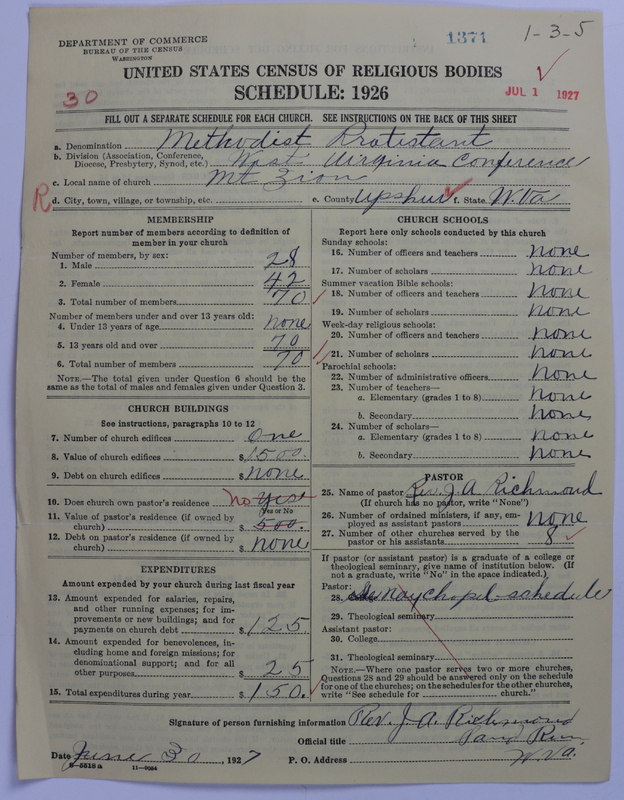 DEPARTMENT OF COMMERCE
BUREAU OF THE CENSUS
WASHINGTON
1371
1-3-5
UNITED STATES CENSUS OF RELIGIOUS BODIES
SCHEDULE: 1926
30
JUL 1 1927
FILL OUT A SEPARATE SCHEDULE FOR EACH CHURCH. SEE INSTRUCTIONS ON THE BACK OF THIS SHEET
a. Denomination Methodist Protestant
b. Division (Association, Conference, Diocese, Presbytery, Synod, etc.) West Virginia Conference
c. Local name of church Mt Zion
R
d. City, town, village, or township, etc. e. County Upshur f. State W.Va
MEMBERSHIP
Report number of members according to definition of
member in your church
Number of members, by sex:
1. Male 28
2. Female 42
3. Total number of members 70
Number of members under and over 13 years old:
4. Under 13 years of age none
5. 13 years old and over 70
6. Total number of members 70
NOTE.—The total given under Question 6 should be the
same as the total of males and females given under Question 3.
CHURCH BUILDINGS
See instructions, paragraphs 10 to 12
7. Number of church edifices One
8. Value of church edifices $1500.
9. Debt on church edifices $ None
10. Does church own pastor's residence no yes
Yes or No
11. Value of pastor's residence (if owned by
church) $ 500.
12. Debt on pastor's residence (if owned by
church) $ none
EXPENDITURES
Amount expended by your church during last fiscal year
13. Amount expended for salaries, repairs,
and other running expenses; for im-
provements or new buildings; and for
payments on church debt $ 125
14. Amount expended for benevolences, in-
cluding home and foreign missions; for
denominational support; and for all
other purposes $ 25
15. Total expenditures during year $ 150.
CHURCH SCHOOLS
Report here only schools conducted by this church
Sunday schools:
16. Number of officers and teachers none
17. Number of scholars none
Summer vacation Bible schools:
18. Number of officers and teachers none
19. Number of scholars none
Week-day religious schools:
20. Number of officers and teachers none
21. Number of scholars none
Parochial schools:
22. Number of administrative officers none
23. Number of teachers—
a. Elementary (grades 1 to 8) none
b. Secondary none
24. Number of scholars—
a. Elementary (grades 1 to 8) none
b. Secondary none
PASTOR
25. Name of pastor Rev. J. A. Richmond
(If church has no pastor, write "None")
26. Number of ordained ministers, if any, em-
ployed as assistant pastors none
27. Number of other churches served by the
pastor or his assistants 8
If pastor (or assistant pastor) is a graduate of a college or
theological seminary, give name of institution below. (If
not a graduate, write "No" in the space indicated.)
Pastor:
28. chapel schedule
29. Theological seminary
Assistant pastor:
30. College
31. Theological seminary
NOTE.—Where one pastor serves two or more churches,
Questions 28 and 29 should be answered only on the schedule
for one of the churches; on the schedules for the other churches,
write "See schedule for church."
Signature of person furnishing information Rev. J. A. Richmond
Official title
Date June 30, 1927 P. O. Address Run W. Va.
11—9054